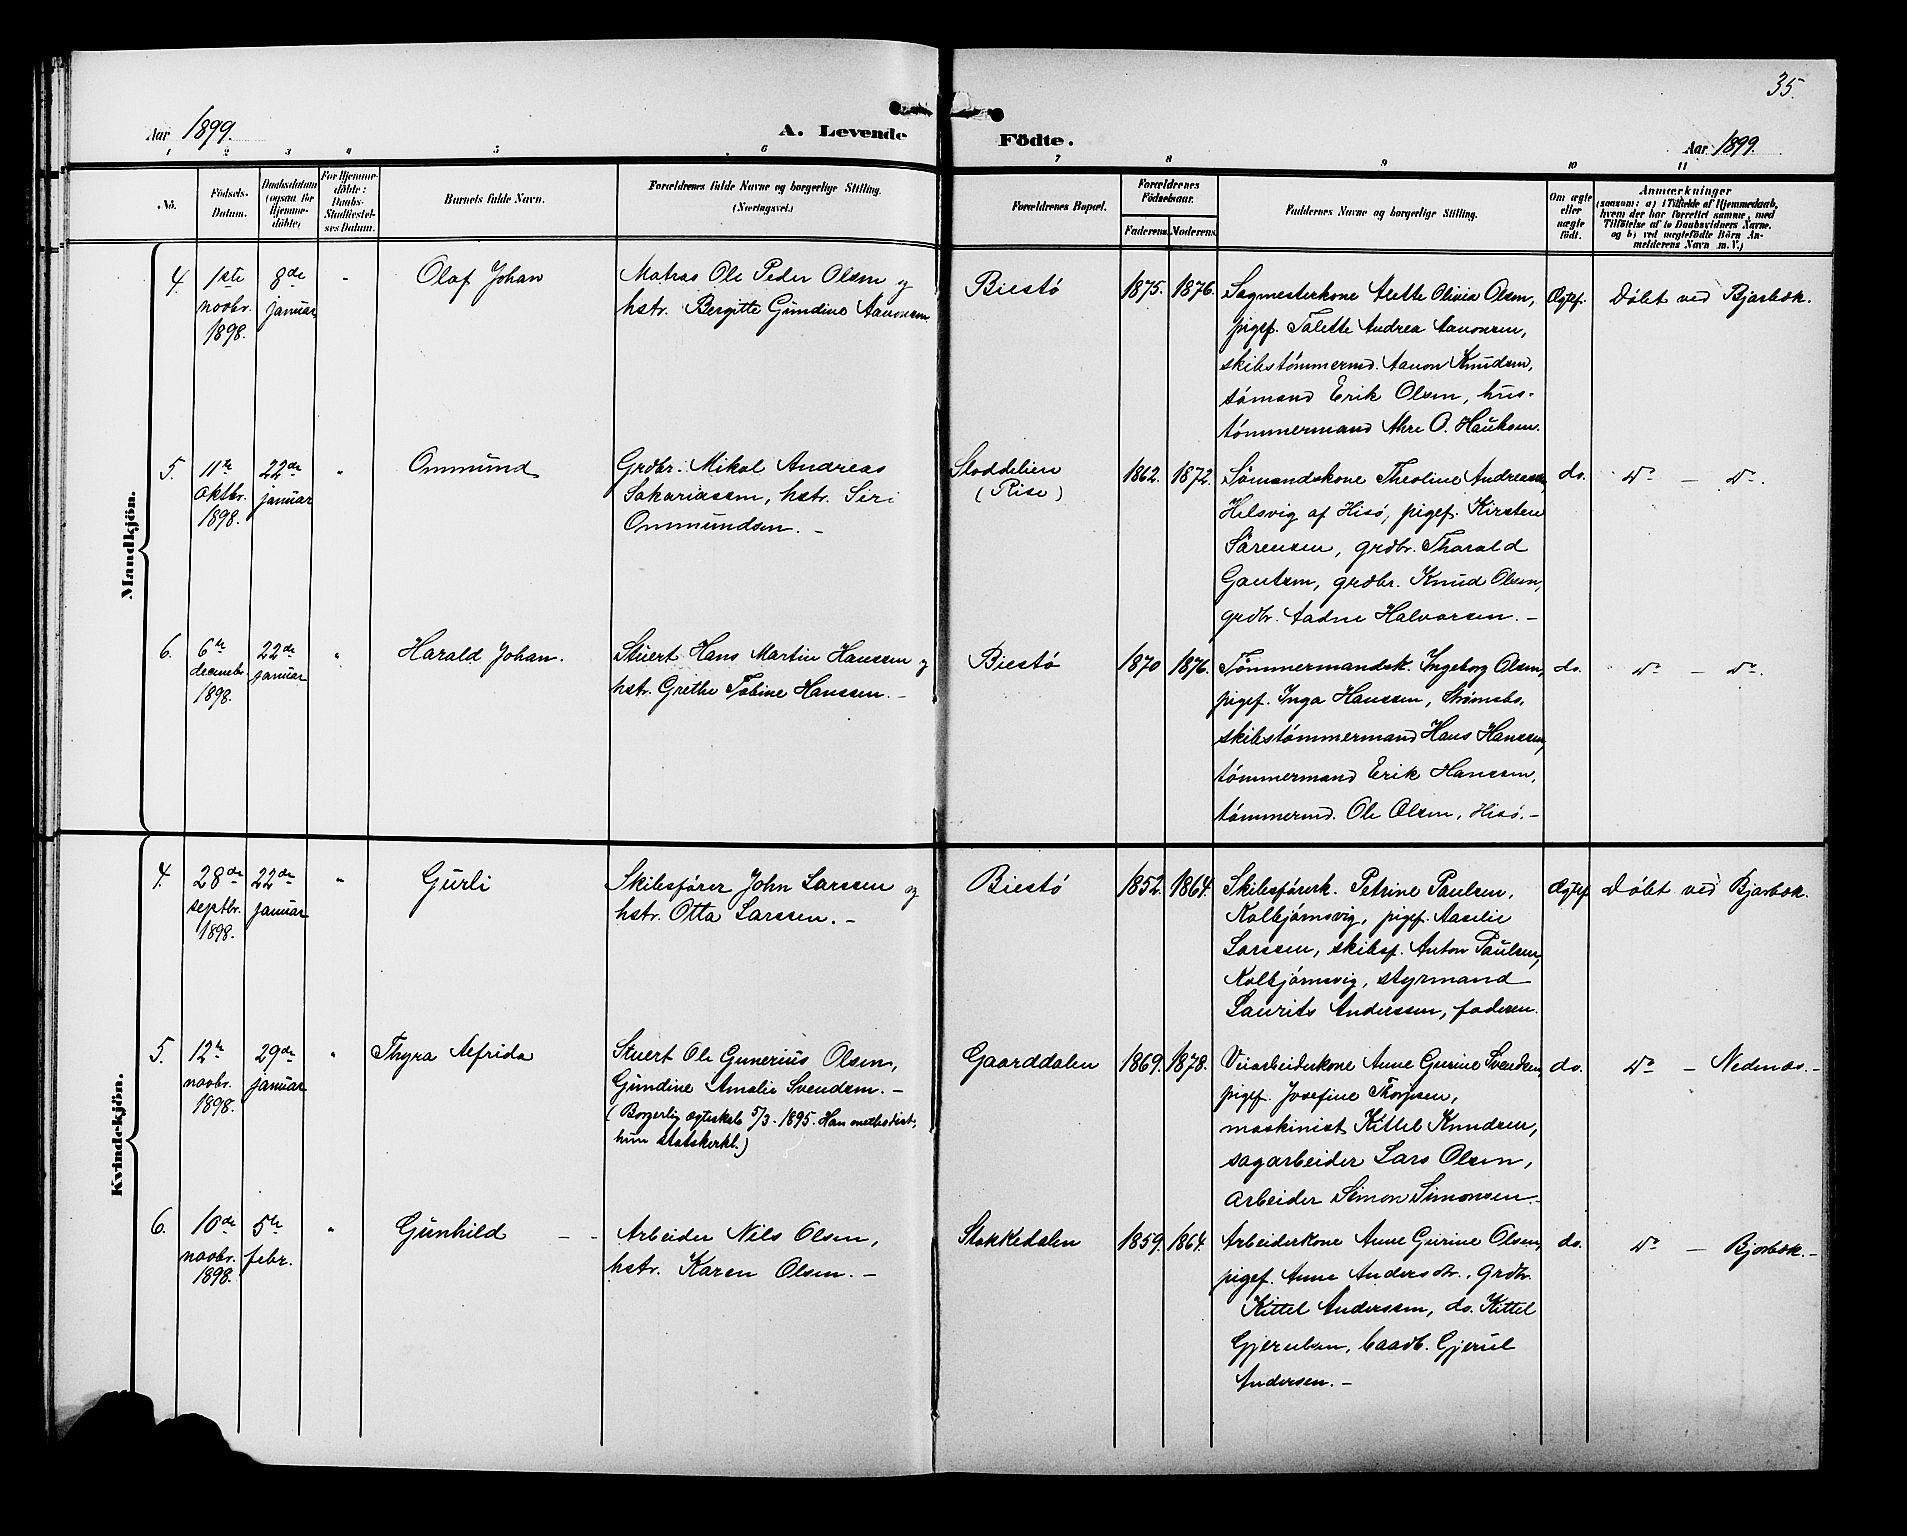 35.
Aar 1899.
A. Levende
Födte.
Aar 1899.
1 2 3 4 5 6 7 8 9 10 11
No.
Födsels-
Datum.
Daabsdatum
(ogsaa for
Hjemme-
döbte)
For Hjemme-
döbte:
Daabs-
Stadfæstel-
ses Datum.
Barnets fulde Navn.
Forældrenes fulde Navne og borgerlige Stilling.
(Næringsvei.)
Forældrenes Bopæl.
Forældrenes
Födselsaar.
Faderens.
Moderens.
Faddernes Navne og borgerlige Stilling.
Om ægte
eller
uægte
født.
Anmærkninger
(saasom: a) i Tilfælde af Hjemmedaab,
hvem der har forrettet samme, med
Tilföielse af to Daabsvidners Navne.
og b) ved uægtefödte Börn An-
melderens Navn m. V.)
Mandkjön.
4.
1ste
novbr.
1898.
8de
januar
Olaf Johan
Matros Ole Peder Olsen og
hstr. Bergitte Gundine Aanonsen.
Biestø
1875.
1876.
Sagmesterkone Alette Olivia Olsen,
pigef. Talette Andrea Aanonsen,
skibstømmermd. Aanon Knudsen,
tømand Erik Olsen, hus-
tømmermand Akre O. Hauksen.
Ægtef.
Døbt ved Bjorbæk.
5.
11te
oktbr.
1898.
22de
januar
Ommund
Grdbr. Mikal Andreas
Sakariassen, hstr. Siri
Ommundsen. –
Stoddelien
(Rise)
1862.
1872.
Sømandskone Theoline Andreassen,
Helsvig af Hisø, pigef. Kirsten
Sørensen, grdbr. Tharald
Gautsen, grdbr. Knud Olsen,
grdbr. Aadne Halvorsen. –
do.
Do – Do.
6.
6te
decmbr.
1898.
22de
januar
Harald Johan.
Stuert Hans Martin Hanssen og
hstr. Grethe Tobine Hanssen. –
Biestø
1870
1876.
Tømmermandsk. Ingeborg Olsen,
pigef. Inga Hanssen, Strømsbo,
skibstømmermand Hans Hanssen,
tømmermand Erik Hanssen,
tømmermd. Ole Olsen, Hisø. –
do.
Do – Do.
Kvindekjön.
4.
28de
septbr.
1898.
22de
januar
Gurli
Skibsfører John Larssen og
hstr. Otta Larssen. –
Biestø
1852.
1864.
Skibsførerk. Petrine Paulsen,
Kolbjørnsvig, pigef. Aasilie
Larssen, skibsf. Anton Paulsen,
Kolbjørnsvig, styrmand
Laurits Anderssen, faderen.
Ægtef.
Døbt ved Bjorbæk.
5.
12te
novbr.
1898.
29de
januar
Thyra Alfrida
Stuert Ole Gunerius Olsen,
Gundine Amalie Svendsen. –
(Borgerlig ægteskab 5/3. 1895. Han methodist,
hun statskirkl.)
Gaarddalen
1869.
1878.
Veiarbeiderkone Anne Gurine Svendsen,
pigef. Josefine Thorjusen,
maskinist Kittel Knudsen,
sagarbeider Lars Olsen,
arbeider Simon Simonsen.
do.
Do – Nedenæs. –
6.
10de
novbr.
1898.
5te
febr.
Gunhild
Arbeider Nils Olsen,
hstr. Karen Olsen. –
Stokkedalen
1859.
1864.
Arbeiderkone Anne Gurine Olsen,
pigef. Anne Andersdtr., grdbr.
Kittel Anderssen, do. Kittel
Gjerulsen, baadb. Gjerul
Andersen. –
do.
Do – Bjorbæk. –